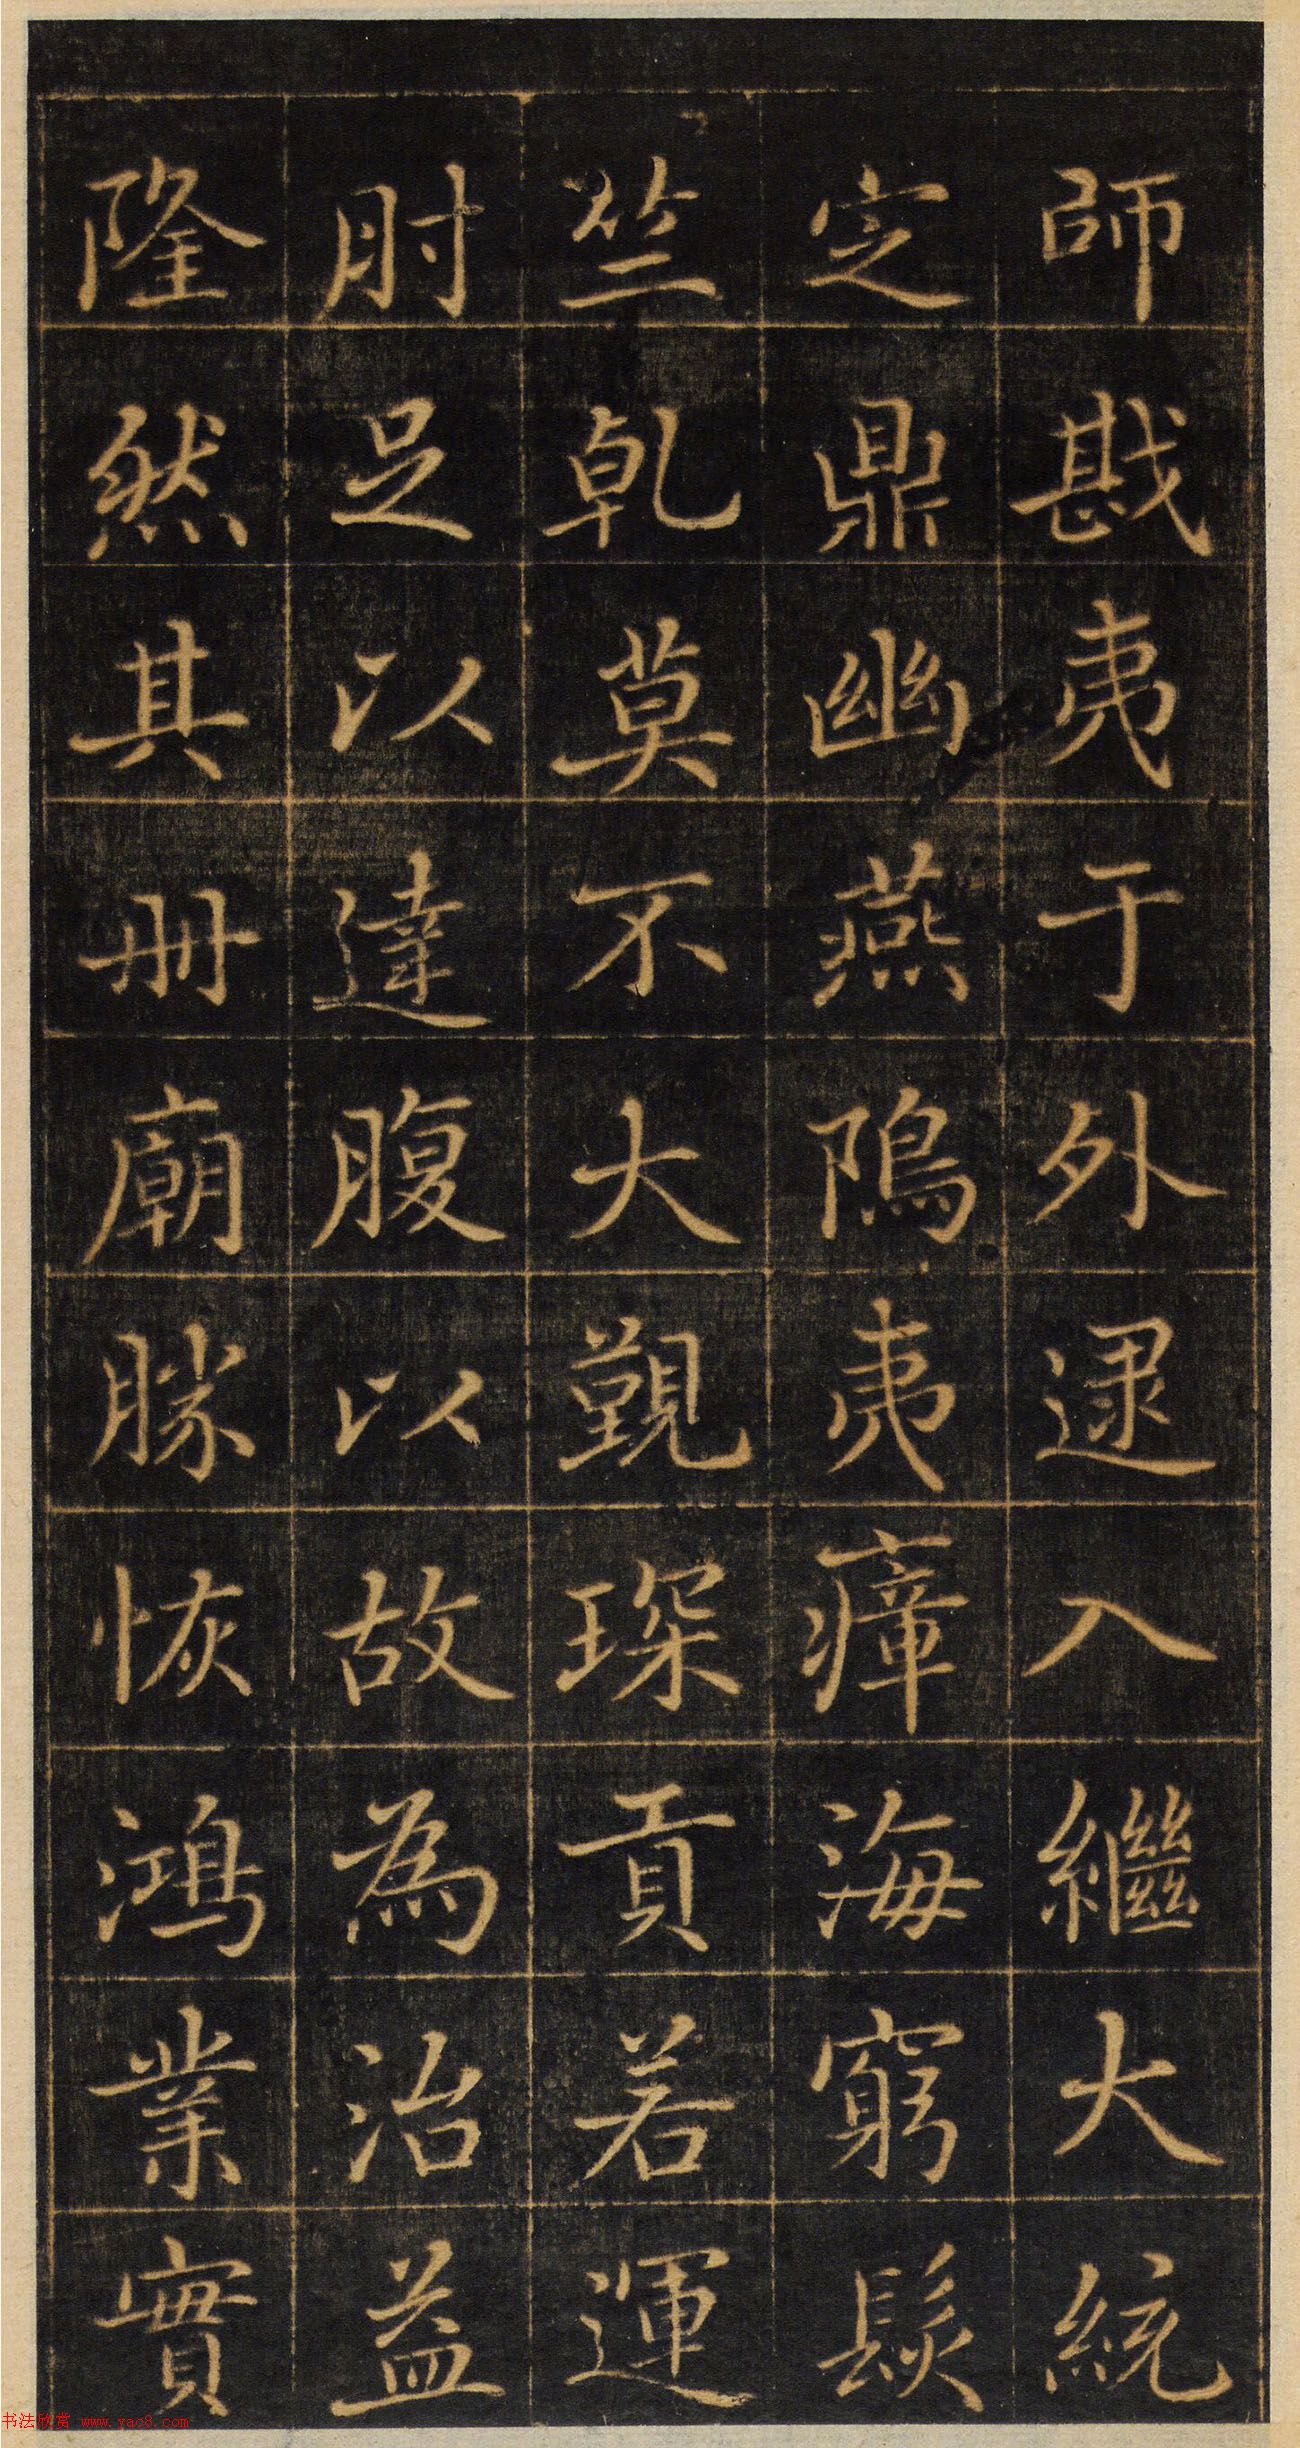 師戡夷于外逮入繼大統
定鼎幽燕隝夷瘴海窮髮
竺乹莫不大覲琛貢若運
肘足以達腹以故為治益
隆然其册廟勝恢鴻業實
书法欣赏 www.yac8.com